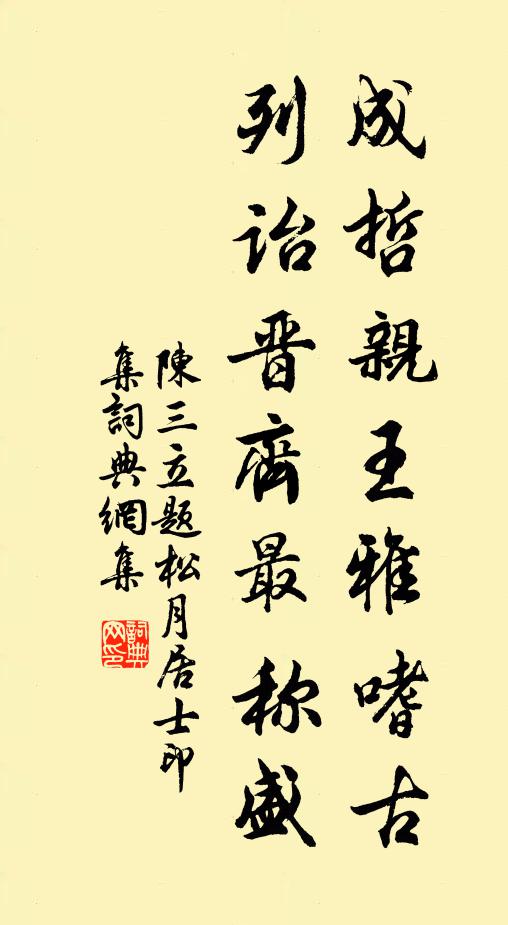 成哲親王雅嗜古
列詒晋齊最称盛
陳三立题松月居士印
集詞典網集
詞典网印